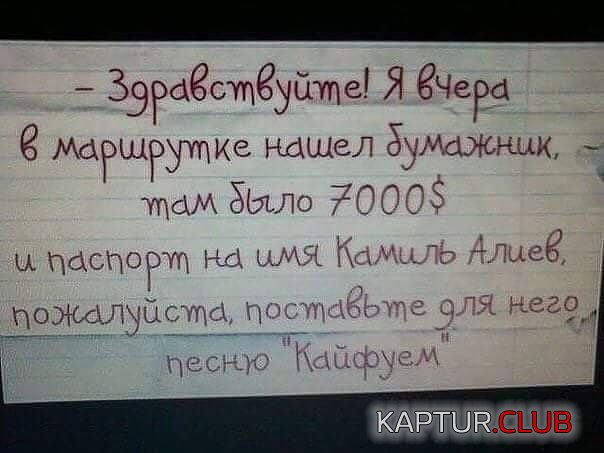 - Здравствуйте! Я вчера
в маршрутке нашел бумажник,
там было 7000$
и паспорт на имя Камиль Алиев,
пожалуйста, поставьте для него
песню "Кайфуем"
KAPTUR.CLUB